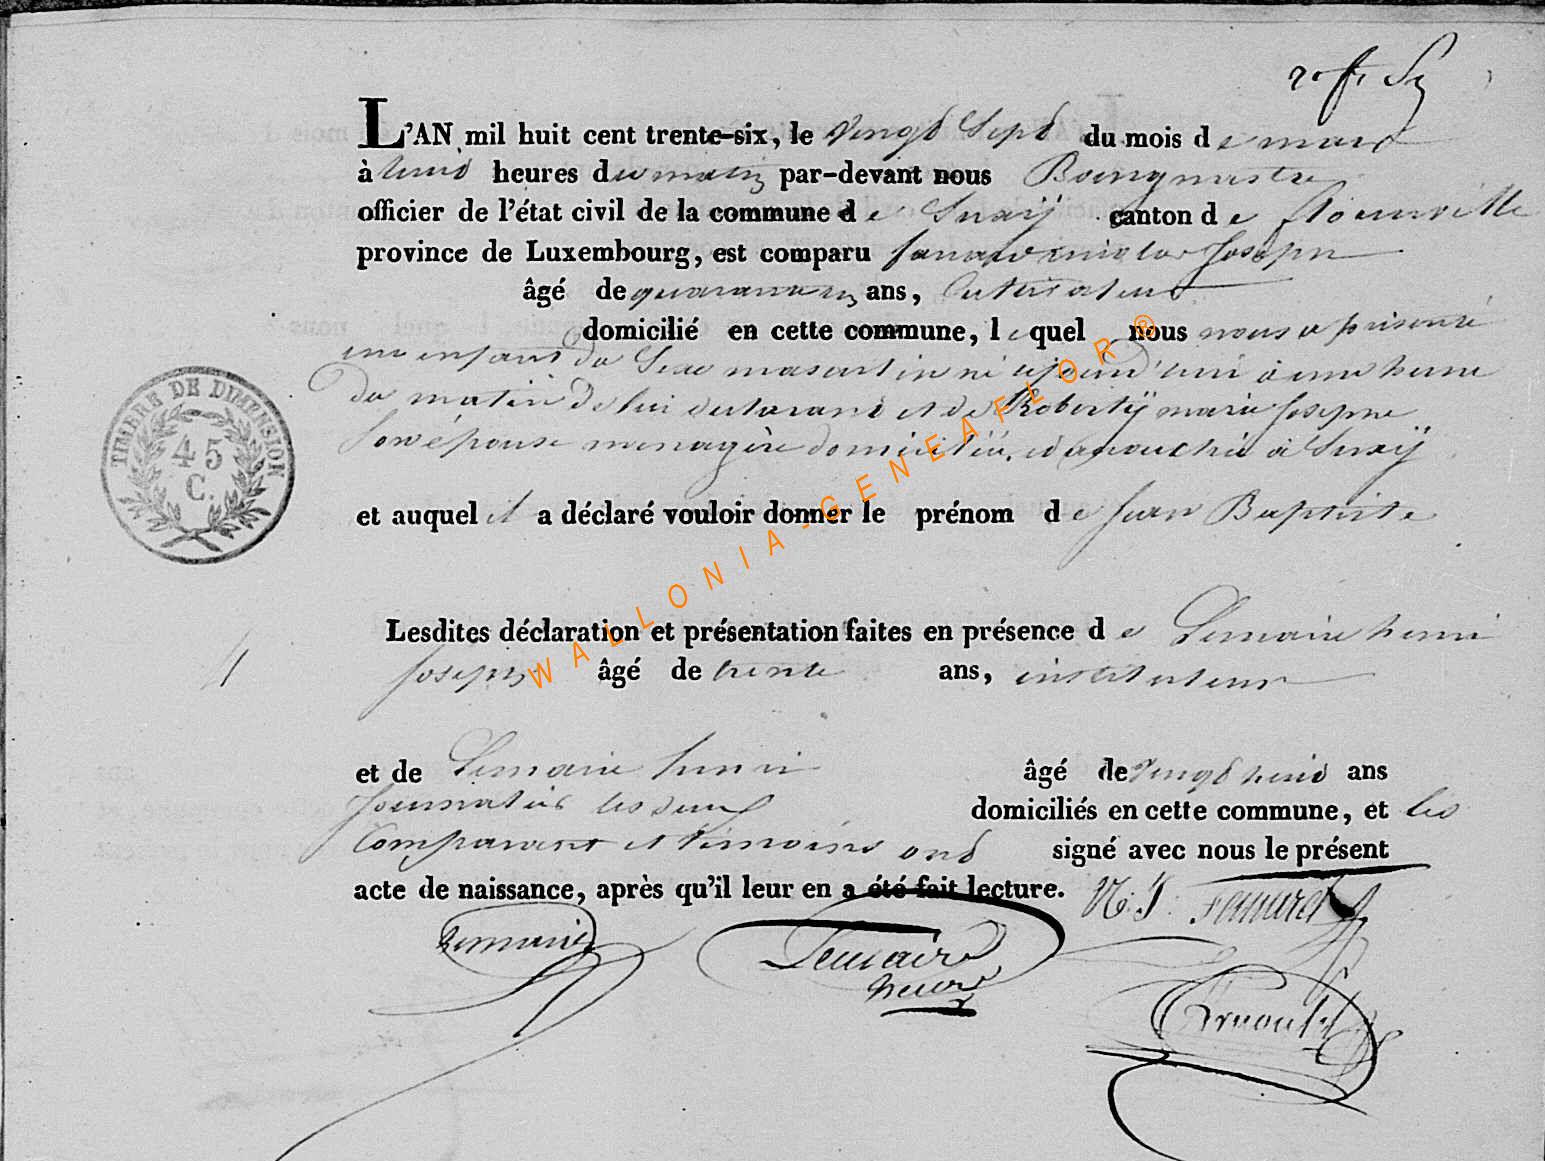 L'AN mil huit cent trente-six, le vingt Sept du mois de mars
à huit heures du matin par-devant nous Bourgmestre
officier de l'état civil de la commune de Suxÿ canton de florenville
province de Luxembourg, est comparu nicolas Joseph
âgé de quarante ans, Cultivateur
domicilié en cette commune, lequel nous nous a présenté
un enfant du Sexe masculin né aujourd'hui à une heure
du matin de lui déclarant et de Robertÿ marie Josephe
Son épouse menagère domiciliée, et accouchée à Suxÿ
et auquel il a déclaré vouloir donner le prénom de Jean Baptiste
TIMBRE DE DIMENSION
45
C.
Lesdites déclaration et présentation faites en présence de Lemaire henri
Joseph âgé de trente ans, instituteur
et de Lemaire henri âgé de vingt huit ans
Journalier les deux domiciliés en cette commune, et les
Comparant et témoins ont signé avec nous le présent
acte de naissance, après qu'il leur en a été fait lecture.
N. J.
Lemaire
Lemaire
henri
WALLONIA-GENEAFLOR®